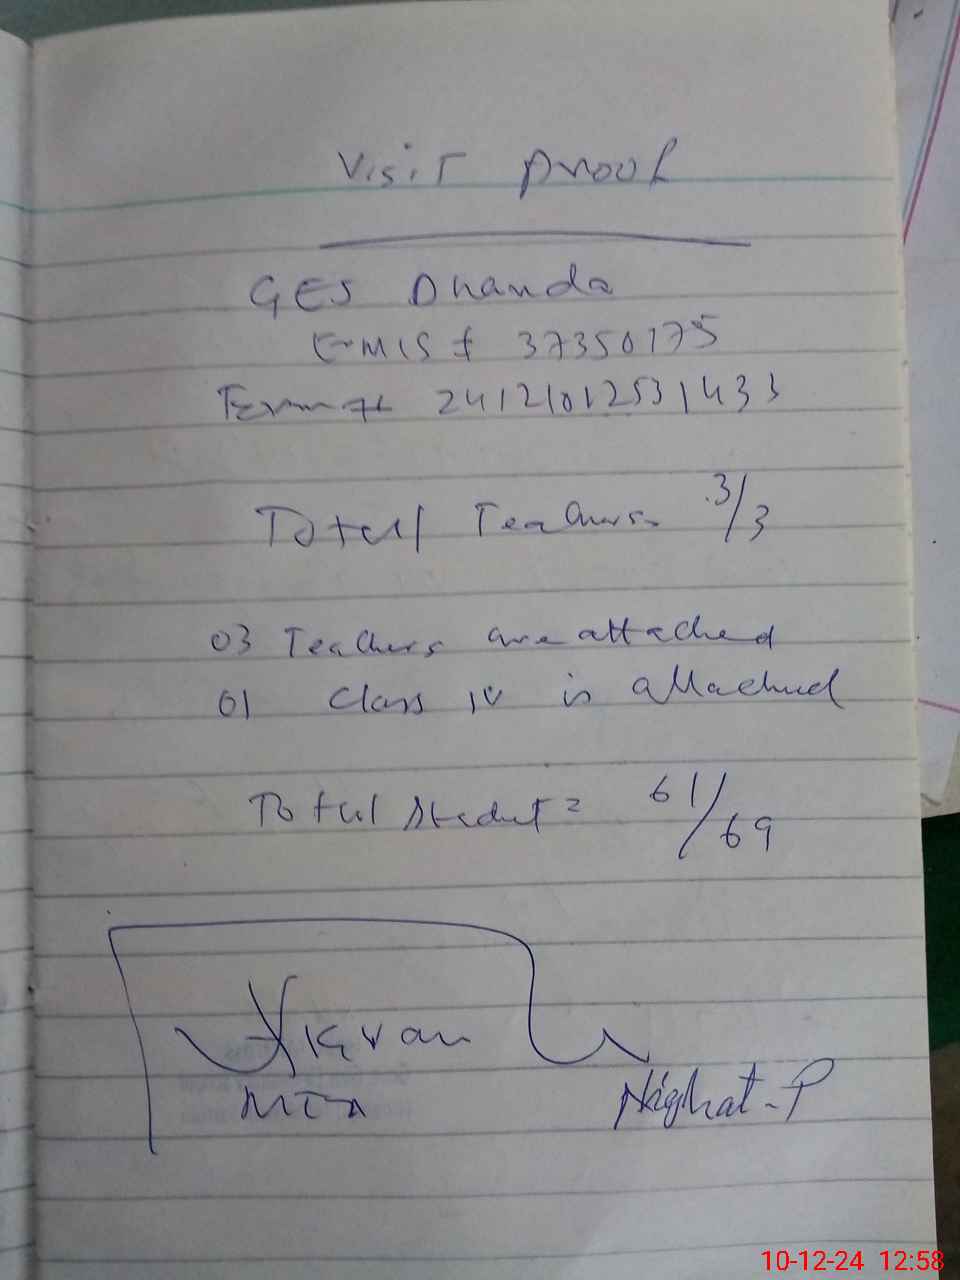 Visit Proof
GES Dhanda
EMIS # 37350175
Term # 24121012531433
Total Teachers 3/3
03 Teachers are attached
01 Class IV is attached
Total student = 61/69
Ikram
MEA
Nighat-P
10-12-24 12:58